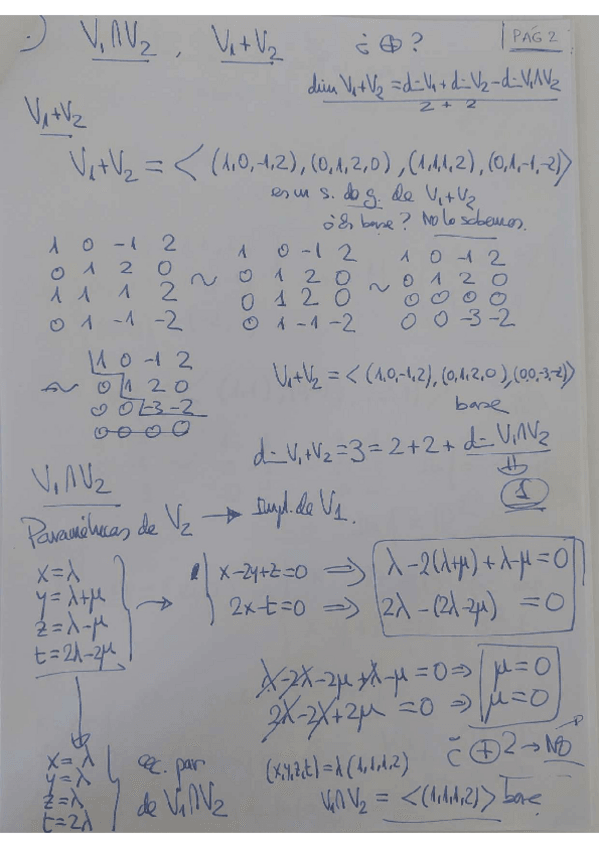 ·) V₁∩V₂ , V₁+V₂ ¿⊕? PÁG 2
dim V₁+V₂ = dim V₁ + dim V₂ - dim V₁∩V₂
2 + 2
V₁+V₂
V₁+V₂ = < (1,0,-1,2), (0,1,2,0), (1,1,1,2), (0,1,-1,-2)>
es un s. de g. de V₁+V₂
¿Es base? No lo sabemos.
1 0 -1 2 1 0 -1 2 1 0 -1 2
0 1 2 0 ~ 0 1 2 0 ~ 0 1 2 0
1 1 1 2 0 1 2 0 0 0 0 0
0 1 -1 -2 0 1 -1 -2 0 0 -3 -2
1 0 -1 2
~ 0 1 2 0
0 0 -3 -2
0 0 0 0
V₁+V₂ = < (1,0,-1,2), (0,1,2,0), (0,0,-3,-2)>
base
dim V₁+V₂ = 3 = 2+2+ dim V₁∩V₂
⇓
1
V₁∩V₂
Paramétricas de V₂ → Impl. de V₁.
x=λ
y=λ+μ
z=λ-μ
t=2λ-2μ
→ x-2y+z=0 ⇒ λ-2(λ+μ)+λ-μ=0
2x-t=0 ⇒ 2λ-(2λ-2μ) =0
λ-2λ-2μ+λ-μ=0 ⇒ μ=0
2λ-2λ+2μ =0 ⇒ μ=0
¿⊕? → NO
x=λ
y=λ
z=λ
t=2λ
ec. par
de V₁∩V₂
(x,y,z,t)=λ(1,1,1,2)
V₁∩V₂ = <(1,1,1,2)> base